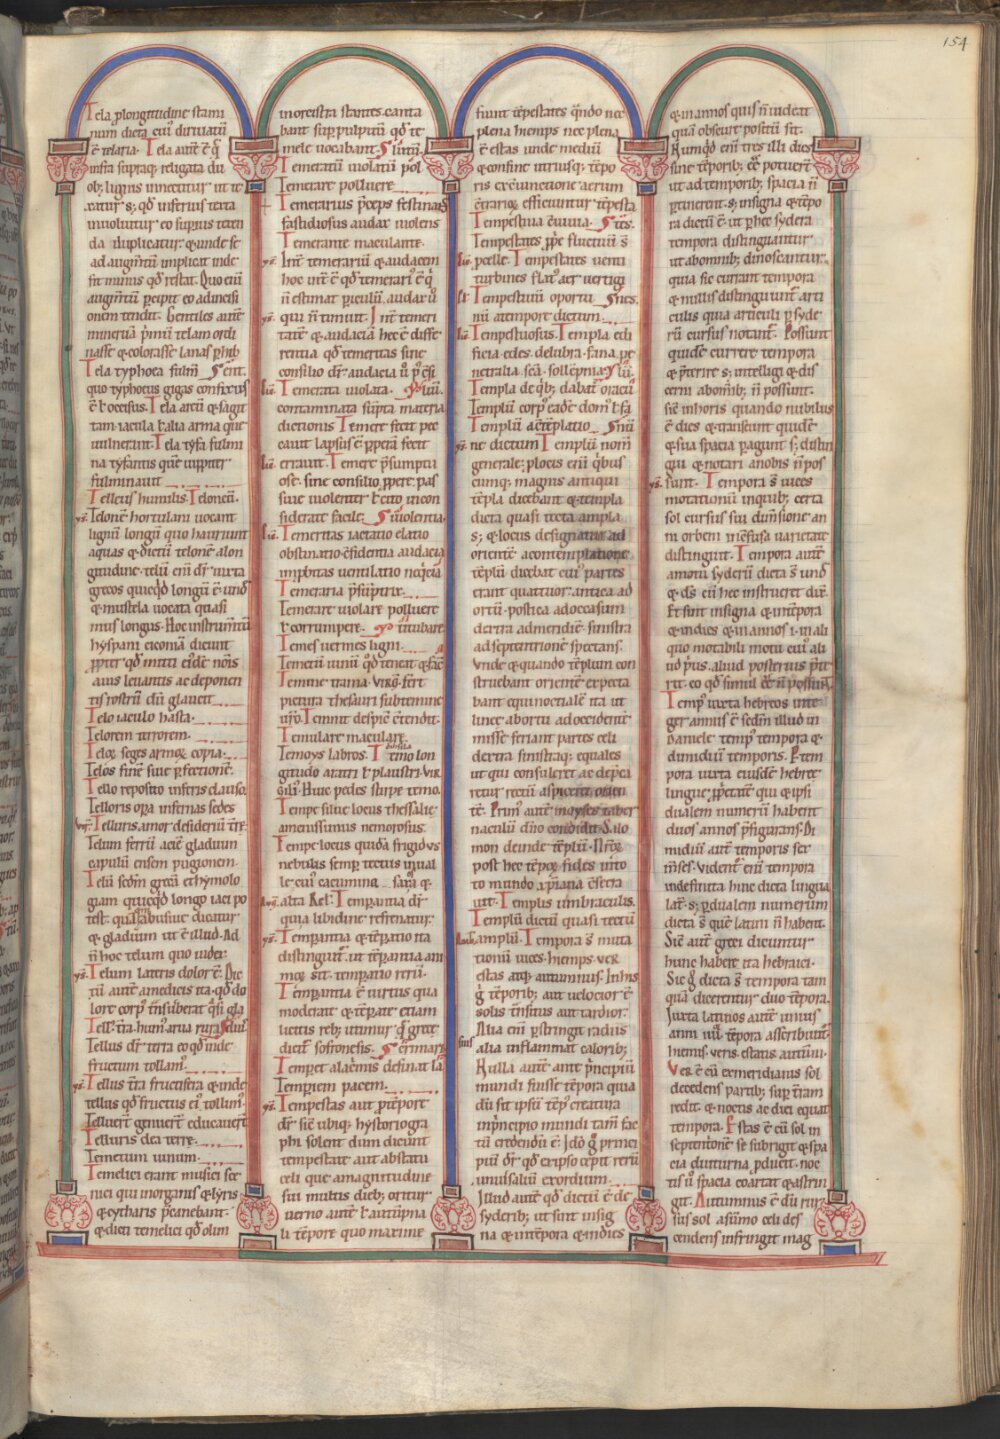 154
Tela ꝑ longitudinē stami
num dicta. eius diriuatiuū
ē telaria. Tela autē ē q̄
infra supraq; religata du
ob; lignis innectitur ut te
xatur s; qđ inferius texta
inuoluitur eo superius texen
da duplicatur. & unde se
ad augm̄tū implicat inde
fit minus qđ restat. Quo eni
augm̄tū
onem tendit. Gentiles autē
mineruā p̄mū telam ordi
nasse & colorasse lanas ꝑhib
Tela typhoea fulm̄
quo typhoeus gigas confixus
ē ł occisus. Tela arcū & sagit
tam iacula ł alia arma que
uulnerant. Tela tyfa fulmi
na tyfantis quē iuppiter
fulminauit
Telleus humilis. Teloneū.
Telonē hortulani uocant
lignū longū quo hauriunt
aquas & dictū telonē a lon
gitudine. telū eni dr̄ iuxta
grecos quicqđ longū ē und
& mustela uocata quasi
mus longus. Hoc instrum̄tū
hyspani ciconiā dicunt
ꝓpter qđ imiti eidē nōis
auis leuantis ac deponen
tis rostrū dū glauett
Telo iaculo hasta.
Telorem terrorem.
Telox seges armoꝝ copia.
Telos finē siue ꝑfectionē.
Tello reposito inferis clauso.
Telloris opa infernas sedes
Telluris amor desideriū t̄re
Telum ferrū aciē gladium
capulū ensem pugionem.
Telū scd̄m grecā ethymolo
giam quicqđ longo iaci po
test. quāuis abusiue dicatur
& gladium ut ē illud. Ad
n̄ hoc telum quo uider
Telum lateris dolor ē. Dic
tū autē a medicis ita. qđ do
lore corpꝰ t̄nsuberat q̄si gla
Tell t̄ra. humꝰ arua rura
Tellus dr̄ terra eo qđ inde
fructum tollamꝰ.
Tellus t̄ra fructifera & inde
tellus qđ fructus eiꝰ tollimꝰ.
Telluert genuert educauert
Telluris dea terre.
Temetum uinum.
Temelici erant musici sce
nici qui in organis & lyris
& cytharis p̄canebant.
& dicti temelici qđ olim
in orcistra stantes canta
bant sup pulpitū qđ te
mele uocabant.
Temeratū uiolatū pol
Temerare polluere
Temerarius p̄ceps festinans
fastidiosus audax uiolens
Temerante maculante.
Int̄ temerariū & audacem
hoc int̄ ē qđ temerariꝰ ē q̄
n̄ estimat ꝑiculū. audax ū
qui n̄ timuit. Int̄ temeri
tatē & audaciā hec ē diffe
rentia qđ temeritas sine
consilio dr̄. audacia ū
Temerata uiolata.
contaminata supta materia
dictionis Temere fecit pec
cauit lapsus ē ꝑperā fecit
errauit. Temere p̄sumptu
ose. sine consilio. ꝓpere. pas
siue uiolenter ł cito incon
siderate facile.
Temeritas iactatio elatio
obstinatio. ꝯfidentia audacia
imp̄bitas uentilatio
Temeraria p̄sūptrix.
Temerare uiolare polluere
ł corrumpere.
Temes uermes ligni.
Temetū uinū qđ teneat &
Temine trama. Virg. fert
pictura thesauri subtemine
uiro. Temnit despicit ꝯtendit.
Temulare maculare.
Temoys labros. Timo lon
gitudo aratri ł plaustri. Vir
gili. Huic pedes stirpe temo.
Tempe siluc locus thessalie
amenissimus nemorosus.
Tempe locus quidā frigidus
nebulis semp tectus in ual
le. eiꝰ cacumina
alta Rel. Temperantia dr̄
quia libidine refrenatur.
Temꝑantia & tēꝑatio ita
distinguūt. ut tēꝑantia ani
moꝝ sit. temꝑatio rerū.
Temꝑantia ē uirtus qua
moderate & tēꝑate etiam
licitis reb; utimur q̄ grece
dicitꝰ sofronesis.
Temper alacrimis definat
Tempiem pacem.
Tempestas aut p tēpore
dr̄. sic ubiq; hystoriogra
phi solent dum dicunt
tempestate aut ab statu
celi que a magnitudine
sui multis dieb; oritur
uerno autē ł autūpna
li tēpore quo maxime
fiunt tēpestates qn̄do nec
plena hiemps nec plena
ē estas unde mediū
& confine utriusq; tēpo
ris ex cōiunctione aerum
ꝯtrarioꝝ efficiuntur tēpesta
Tempestiua cuuua.
Tempestates ꝓpe fluctuū s̄
ꝓcelle. Tempestates uenti
turbines flatꝰ aer uertigi
Tempestiuū oportu
nū a tempore dictum.
Tempestuosus. Templa edi
ficia edes. delubra. fana. pe
netralia. sc̄a. sollēpnia.
Templa de qb; dabant oracu
Templū corpꝰ eade dom ł fa
Templū a ꝯtēplatio
ne dictum Templū nom̄
generale. ꝓ locis eni qibus
cumq; magnis antiqui
tēpla dicebant & templa
dicta quasi tecta ampla
s; & locus designatus ad
orientē a contemplatione
tēplū dicebat cuiꝰ partes
erant quattuor. antica ad
ortū. postica ad occasum
dextra ad meridiē. sinistra
ad septentrionē spectans.
Vnde & quando tēplum con
struebant orientē expecta
bant equinoctialē ita ut
linee ab ortu ad occidentē
misse fierant partes celi
dextra sinistraq; equales
ut qui consuleret ac depca
retur rectū aspiceret orien
tē. Primꝰ autē moyses taber
naculū dn̄o condidit. Salo
mon deinde tēplū. Nr̄oꝝ
post hec tēpoꝝ fides in to
to mundo xp̄iana ꝯsecra
uit. Templis umbraculis.
Templū dictū quasi tectū
amplū. Tempora s̄ muta
tionū uices. hiemps. ver
estas atq; autumnus. In his
g̊ tēporib; aut uelocior ē
solis t̄nsitus aut tardior.
Alia eni ꝑstringit radiis
alia inflammat calorib;
Nulla autē ante p̄ncipiū
mundi fuisse tēpora quia
dū sit ipsū tēpꝰ creatura
in p̄ncipio mundi tam̄ fac
tū credendū ē. Ideo g̊ princi
piū dr̄ qđ ex ipso cepit rerū
uniusaliū exordium.
Illud autē qđ dictū ē de
syderib; ut sint insig
na & in tēpora & in dies
& in annos quis n̄ uideat
quā obscure positū sit.
Numqđ eni tres illi dies
sine tēporib; eē potuert
ut ad temporib; spacia n̄
ꝑtinerent. s; in signa & tēpo
ra dictū ē. ut ꝑ hec sydera
tempora distinguantur
ut ab omnib; dinoscantur.
quia sic currant tempora
& nullis distinguūtur arti
culis quia articuli ꝑ syde
rū cursus notantꝰ. Possunt
quidē currere tempora
& p̄terire s; intelligi & dis
cerni ab omīb; n̄ possunt.
sic in horis quando nubilus
ē dies & transeunt quidē
& sua spacia ꝑagunt s; distin
gui & notari a nobis n̄ pos
sunt. Tempora s̄ uices
motationū in quib; certa
sol cursus sui dimensione an
ni orbem in ꝯfusa uarietate
distinguit. Tempora autē
a motu syderū dicta s̄ und
& ds̄. cū hec instrueret dix.
Et sint in signa & in tēpora
& in dies & in annos .i. in ali
quo motabili motu cuiꝰ ali
ud priꝰ. aliud posterius p̄te
rit. eo qđ simul eē n̄ possunt.
Tempꝰ iuxta hebreos inte
ger annus ē scd̄m illud in
Daniele. tempꝰ tempora &
dimidiū temporis. P tem
pora iuxta eiusdē hebree
lingue ꝓp̄etatē qui & ipsi
dualem numerū habent
duos annos p̄figurans. Di
midiū autē temporis sex
m̄ses. Videntꝰ eni tempora
indefinita hinc dicta lingua
lat̄. s; ꝑ dualem numerum
dicta s̄ quē latini n̄ habent.
Sic autē greci dicuntur
hunc habere ita hebraici.
Sic g̊ dicta s̄ tempora tam
quā dicerentur duo tēpora.
Iuxta latinos autē unius
anni iiiiᵒʳ tēpora asscribunt
hiemis. veris. estatis autūni.
Ver ē cū ex meridianis sol
decedens partib; sup t̄ram
redit. & noctis ac diei equat
tempora. Estas ē cū sol in
septentōnē se subrigit & spa
cia diuturna ꝓducit. noc
tis ū spacia coartat & astrin
git. Autumnus ē dū rur
sus sol a sūmo celi des
cendens infringit mag